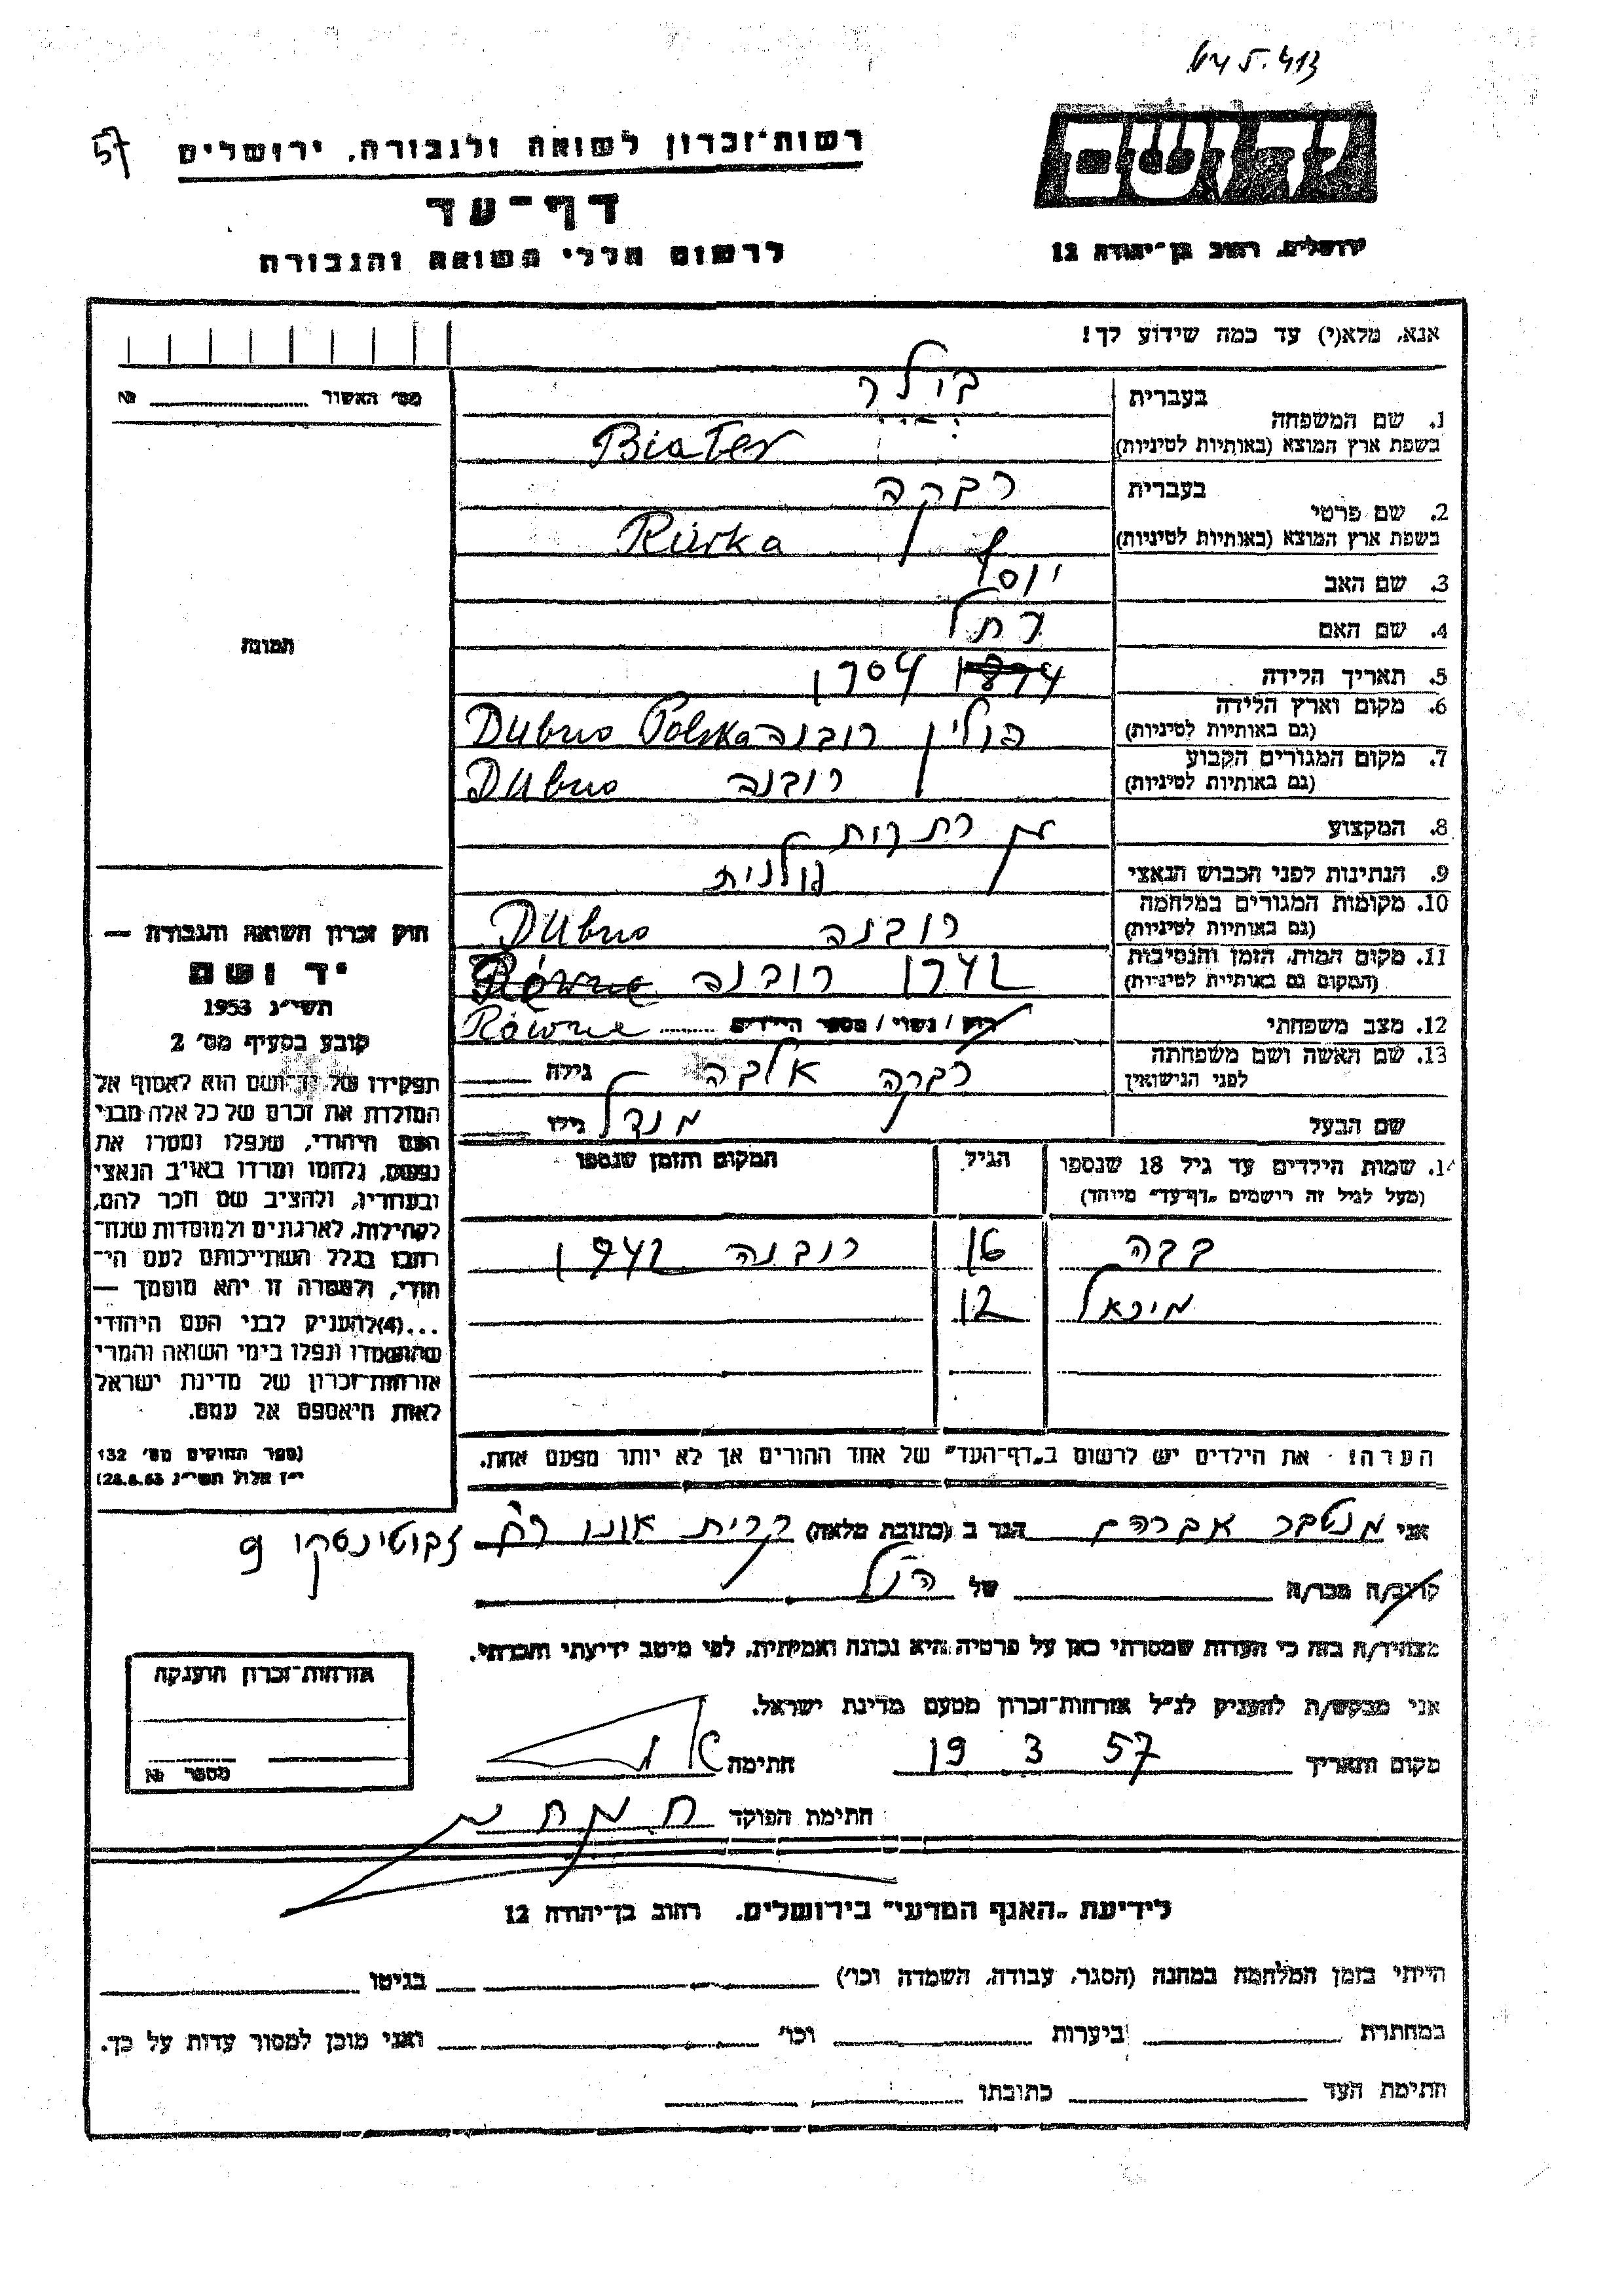 413 .5
57
רשות־זכרון לשואה ולגבורה, ירושלים
יד ושם
דף־עד
לרשום חללי השואה והגבורה
ירושלים, רחוב בן־יהודה 12
אנא, מלא(י) עד כמה שידוע לך!
מס׳ האשור № 
1. שם המשפחה
בעברית
בולר
בשפת ארץ המוצא (באותיות לטיניות)
Biater
2. שם פרטי
בעברית
רבקה
בשפת ארץ המוצא (באותיות לטיניות)
Riwka
3. שם האב יוסף
4. שם האם רחל
תמונה
5. תאריך הלידה 1904
6. מקום וארץ הלידה פולין רובנה Dubno Polska
(גם באותיות לטיניות)
7. מקום המגורים הקבוע רובנה Dubno
(גם באותיות לטיניות)
8. המקצוע
9. הנתינות לפני הכבוש הנאצי פולנית
10. מקומות המגורים במלחמה רובנה Dubno
(גם באותיות לטיניות)
11. מקום המות, הזמן והנסיבות 1942 רובנה Równe
(המקום גם באותיות לטיניות)
12. מצב משפחתי רוק / נשוי / מספר הילדים Równe
13. שם האשה ושם משפחתה רבקה גילה
לפני הנישואין
שם הבעל מנדל גילו
14. שמות הילדים עד גיל 18 שנספו הגיל המקום והזמן שנספו
(מעל לגיל זה רושמים „דף־עד״ מיוחד)
בבה 16 רובנה 1942
מיכאל 12
הערה: את הילדים יש לרשום ב„דף־העד״ של אחד ההורים אך לא יותר מפעם אחת.
חוק זכרון השואה והגבורה —
יד ושם
תשי״ג 1953
קובע בסעיף מס׳ 2
תפקידו של יד־ושם הוא לאסוף אל
המולדת את זכרם של כל אלה מבני
העם היהודי, שנפלו ומסרו את
נפשם, נלחמו ומרדו באויב הנאצי
ובעוזריו, ולהציב שם וזכר להם,
לקהילות, לארגונים ולמוסדות שנח־
רבו בגלל השתייכותם לעם הי־
הודי, ולמטרה זו יהא מוסמך —
...(4)להעניק לבני העם היהודי
שהושמדו ונפלו בימי השואה והמרי
אזרחות־זכרון של מדינת ישראל
לאות היאספם אל עמם.
(ספר החוקים מס׳ 132
י״ז אלול תשי״ג 28.8.53)
אני מנטבר אברהם הגר ב (כתובת מלאה) קרית אונו רח׳ זבוטינסקי 9
קרוב/ה מכר/ה של הנ״ל
מצהיר/ה בזה כי העדות שמסרתי כאן על פרטיה היא נכונה ואמיתית, לפי מיטב ידיעתי והכרתי.
אני מבקש/ת להעניק לנ״ל אזרחות־זכרון מטעם מדינת ישראל.
מקום ותאריך 19 3 57 חתימה
חתימת הפוקד
אזרחות־זכרון הוענקה
מספר №
לידיעת „האגף המדעי״ בירושלים, רחוב בן־יהודה 12
הייתי בזמן המלחמה במחנה (הסגר, עבודה, השמדה וכו׳) בגיטו
במחתרת ביערות וכו׳ ואני מוכן למסור עדות על כך.
חתימת העד כתובתו